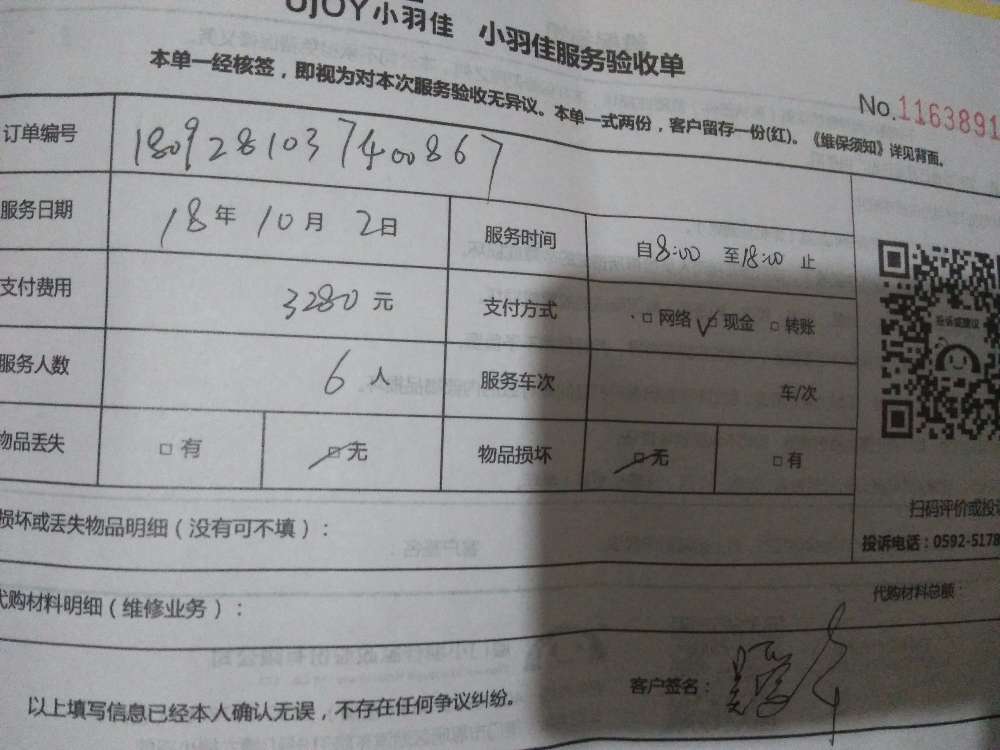 UJOY小羽佳 小羽佳服务验收单
本单一经核签，即视为对本次服务验收无异议。本单一式两份，客户留存一份(红)。《维保须知》详见背面。
No.1163891
订单编号 1809281037400867
服务日期 18年 10月 2日 服务时间 自8:00 至18:00 止
支付费用 3280元 支付方式 □ 网络 □ 现金 □ 转账
服务人数 6人 服务车次 车/次
物品丢失 □ 有 □ 无 物品损坏 □ 无 □ 有
投诉或建议
扫码评价或投诉
投诉电话：0592-5178
损坏或丢失物品明细（没有可不填）：
代购材料明细（维修业务）： 代购材料总额：
以上填写信息已经本人确认无误，不存在任何争议纠纷。 客户签名：